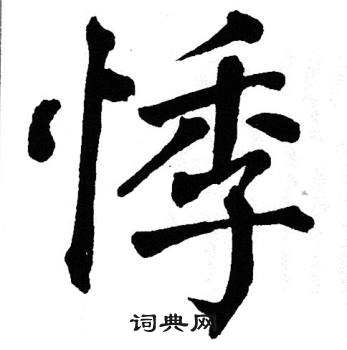 悸
词典网